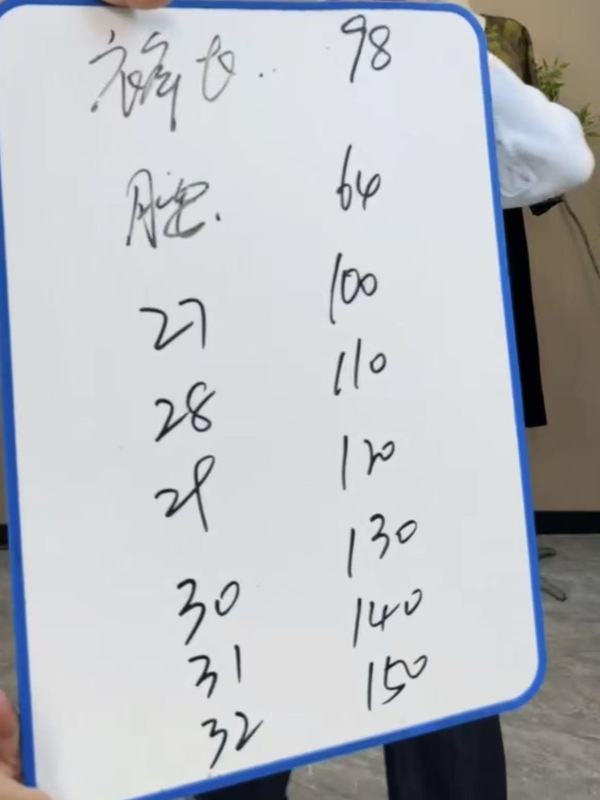 裤长.. 98
腰. 64
27 100
28 110
29 120
30 130
31 140
32 150